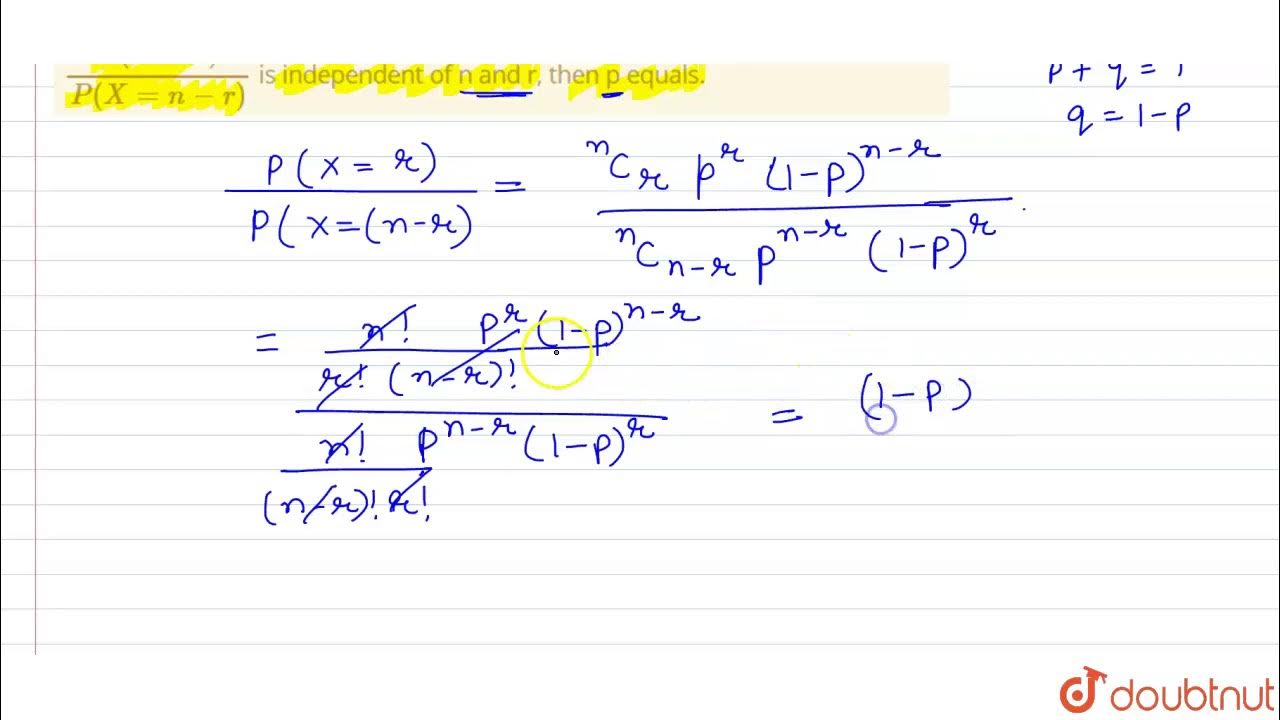 P(X = n − r) is independent of n and r, then p equals.
p + q = 1
q = 1 − p
P(x = r) / P(x = (n−r) = ⁿCᵣ pʳ (1−p)ⁿ⁻ʳ / ⁿCₙ₋ᵣ pⁿ⁻ʳ (1−p)ʳ .
= n! pʳ (1−p)ⁿ⁻ʳ
r! (n−r)!
n! pⁿ⁻ʳ (1−p)ʳ = (1−p)
(n−r)! r!
doubtnut